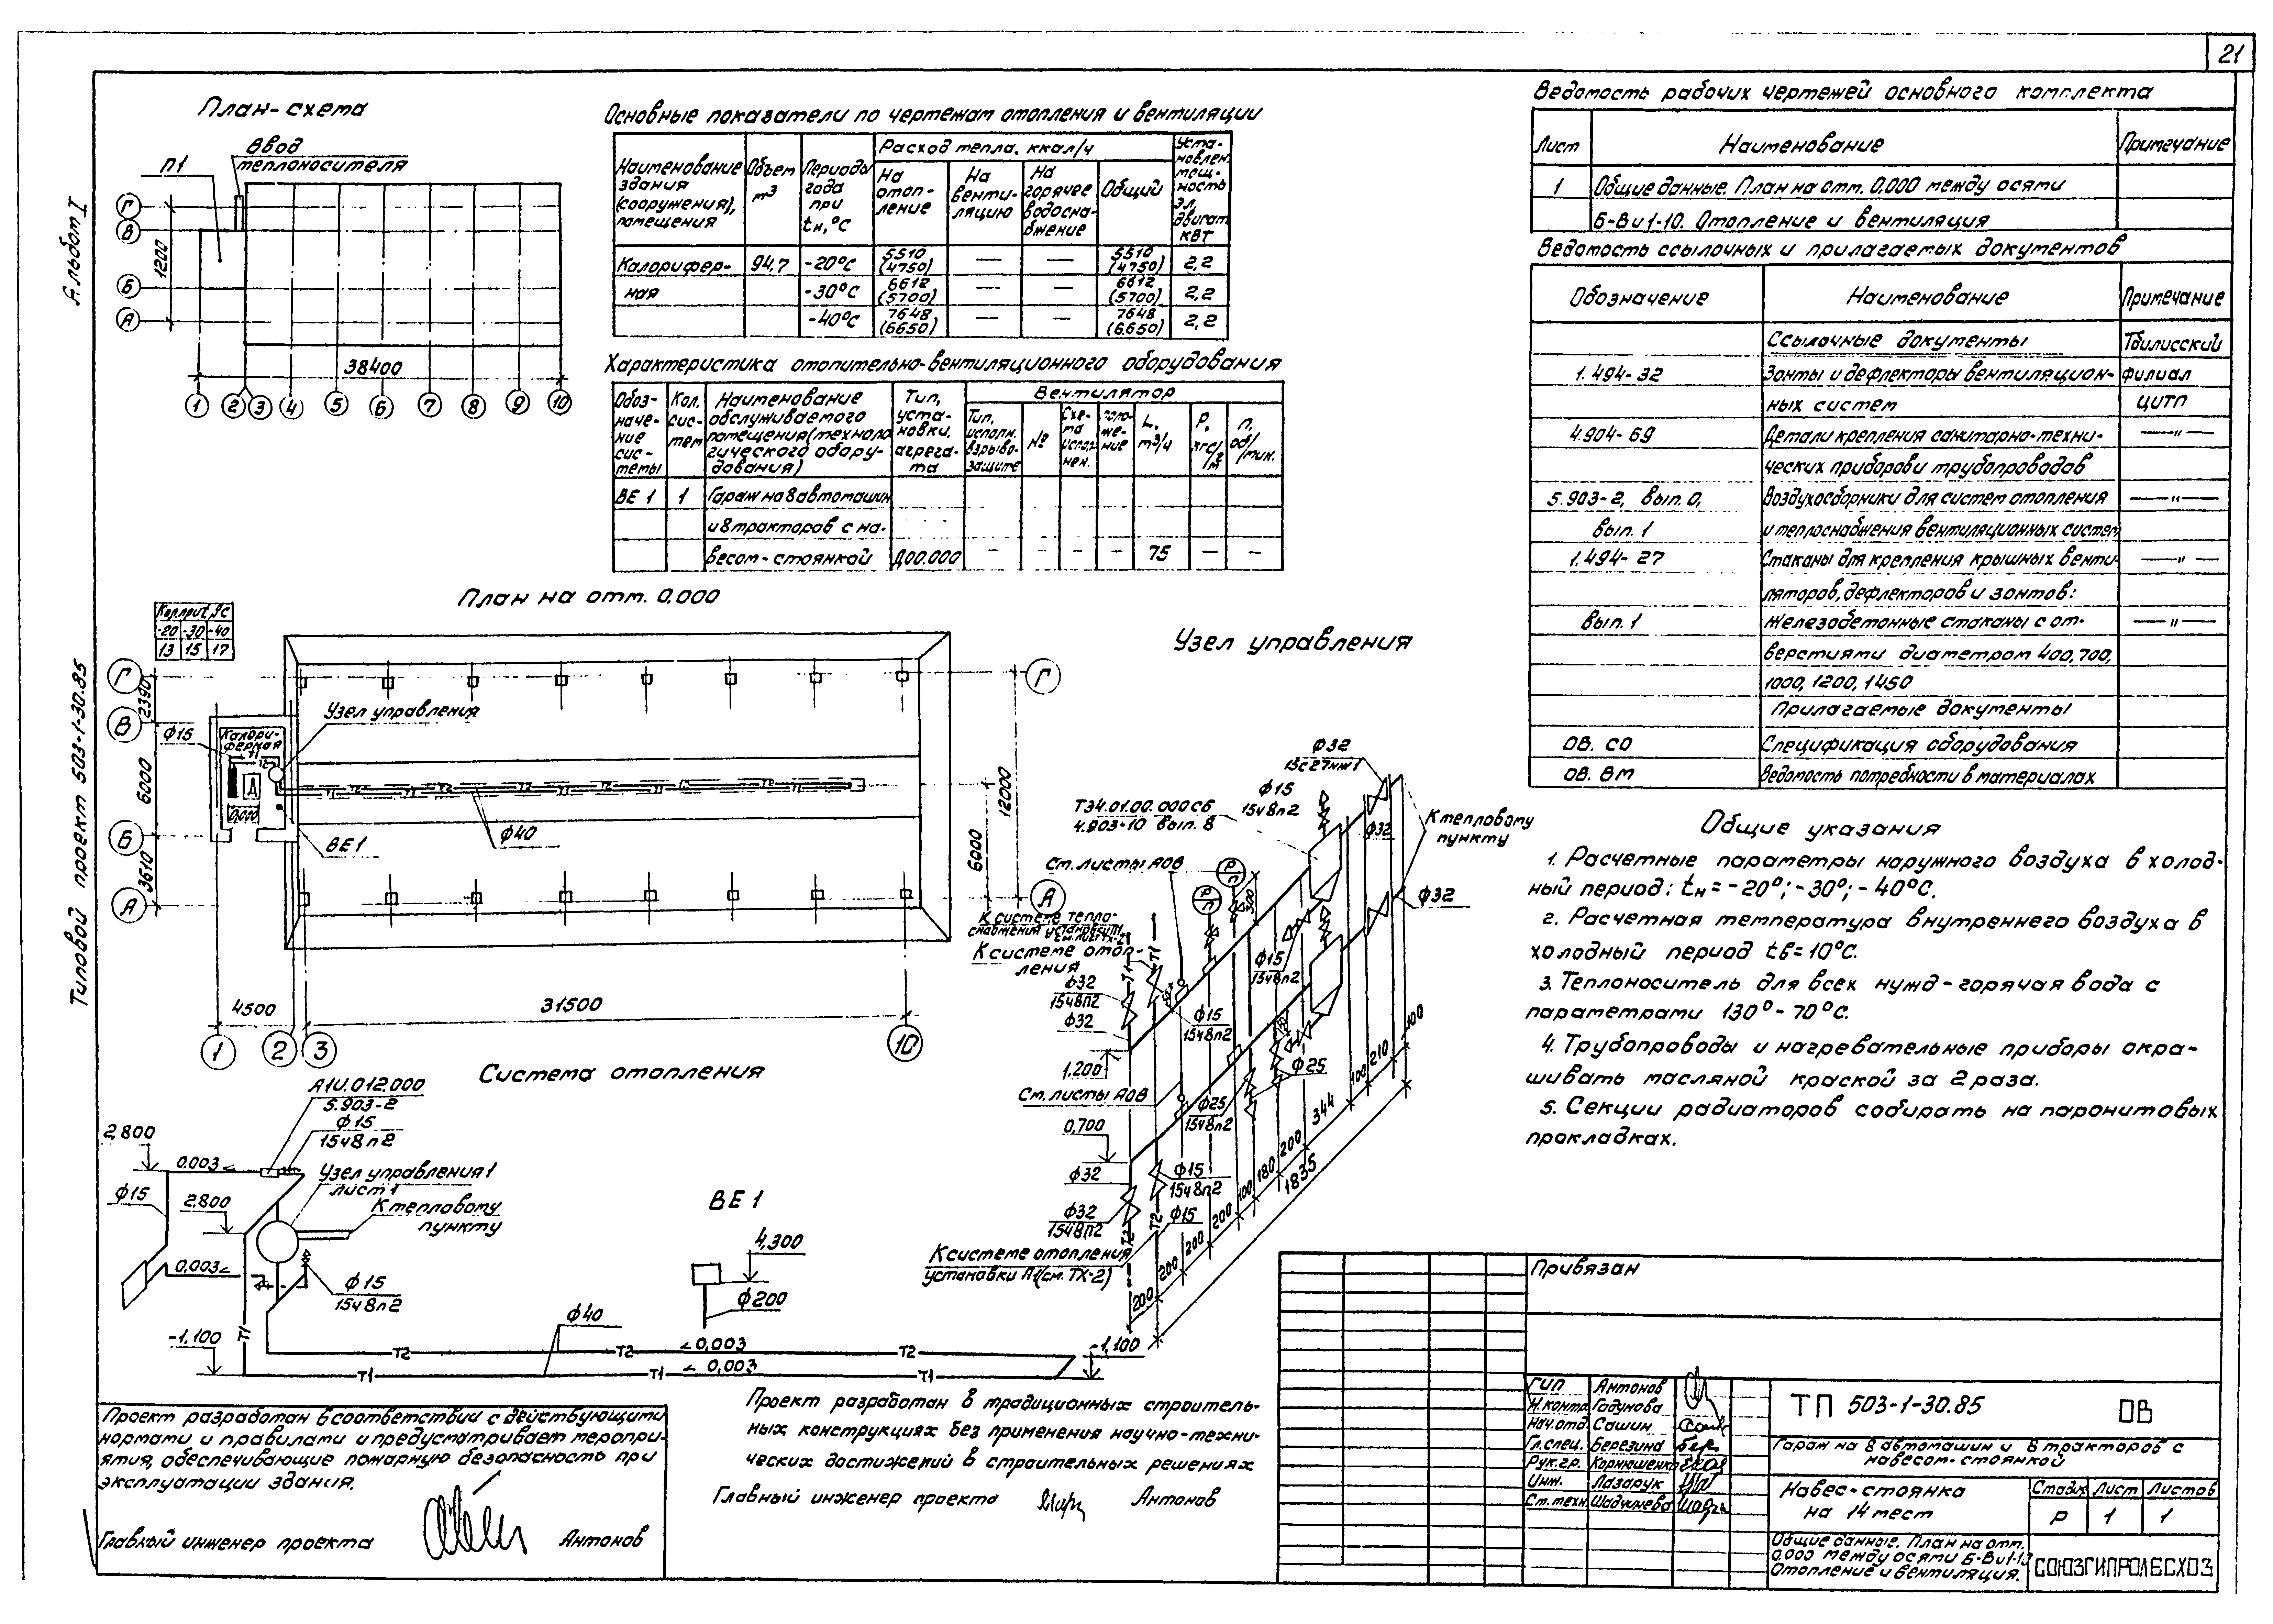 21
Альбом I
Типовой проект 503-1-30.85
План-схема
Ввод
теплоносителя
П1
Г
В
Б
А
1200
38400
1 2 3 4 5 6 7 8 9 10
Основные показатели по чертежам отопления и вентиляции
Наименование здания (сооружения), помещения
Объем м3
Периоды года при tн, °C
Расход тепла, ккал/ч
На отоп-ление
На венти-ляцию
На горячее водосна-бжение
Общий
Уста-новлен. мощ-ность эл. двигат. кВт
Калорифер- 94,7 -20°C 5510 (4750) — — 5510 (4750) 2,2
ная -30°C 6612 (5700) — — 6612 (5700) 2,2
-40°C 7648 (6650) — — 7648 (6650) 2,2
Характеристика отопительно-вентиляционного оборудования
Обоз-наче-ние сис-темы
Кол. сис-тем
Наименование обслуживаемого помещения (техноло гического обору-дования)
Тип, уста-новки, агрега-та
Вентилятор
Тип, исполн. взрыво-защите
№
Схе-ма испол-нен.
Поло-же-ние
L, м3/ч
P, кгс/м2
n, об/мин.
ВЕ 1 1 Гараж на 8 автомашин
и 8 тракторов с на-
весом-стоянкой Д00.000 — — — — 75 — —
План на отм. 0,000
Кол. при t, °C
-20 -30 -40
13 15 17
Г
В
Б
А
2390
6000
3610
Ф15
Калори-
ферная
Узел управления
Д
0,000
Т1 Т2
ВЕ 1
Ф40
12000
6000
Г
А
4500
31500
1 2 3 10
Система отопления
А1И.012.000
5.903-2
Ф15
15ч8п2
2,800
0.003
Узел управления 1
лист 1
Ф15
2.800
К тепловому
пункту
0,003
Ф15
15ч8п2
-1,100
Т1
Ф40
Т2 Т2 0,003 Т2
Т1 Т1 0,003 Т1
-1,100
ВЕ 1
4,300
Ф200
Узел управления
Ф32
15с27нж1
Ф15
15ч8п2
ТЭ4.01.00.000 СБ
4.903-10 вып. 8
Ф32
К тепловому
пункту
См. листы АОВ
Р
П
Р
П
300
Ф32
К системе тепло-
снабжения установки П1
см. лист ТХ-2
К системе отоп-
ления
Т1 Т1
Ф32
15ч8п2
Ф32
Ф15
15ч8п2
Ф15
15ч8п2
1,200
См. листы АОВ
Ф25
15ч8п2
Ф25
0,700
Ф32
Ф15
15ч8п2
Ф32
15ч8п2
Ф15
Т2 Т2
К системе отопления
установки П1 (см. ТХ-2)
200 200 200 200 100 180 200 344 100 210 100
1835
Ведомость рабочих чертежей основного комплекта
Лист Наименование Примечание
1 Общие данные. План на отм. 0,000 между осями
Б-В и 1-10. Отопление и вентиляция
Ведомость ссылочных и прилагаемых документов
Обозначение Наименование Примечание
Ссылочные документы Тбилисский
1.494-32 Зонты и дефлекторы вентиляцион- филиал
ных систем ЦИТП
4.904-69 Детали крепления санитарно-техни- —"—
ческих приборов и трубопроводов
5.903-2, вып. 0, Воздухосборники для систем отопления —"—
вып. 1 и теплоснабжения вентиляционных систем
1.494-27 Стаканы для крепления крышных венти- —"—
ляторов, дефлекторов и зонтов:
Вып. 1 Железобетонные стаканы с от- —"—
верстиями диаметром 400, 700,
1000, 1200, 1450
Прилагаемые документы
ОВ. СО Спецификация оборудования
ОВ. ВМ Ведомость потребности в материалах
Общие указания
1. Расчетные параметры наружного воздуха в холод-
ный период: tн = -20°; -30°; -40°C.
2. Расчетная температура внутреннего воздуха в
холодный период tв = 10°C.
3. Теплоноситель для всех нужд - горячая вода с
параметрами 130° - 70°C.
4. Трубопроводы и нагревательные приборы окра-
шивать масляной краской за 2 раза.
5. Секции радиаторов собирать на паронитовых
прокладках.
Проект разработан в соответствии с действующими
нормами и правилами и предусматривает меропри-
ятия, обеспечивающие пожарную безопасность при
эксплуатации здания.
Главный инженер проекта Антонов
Проект разработан в традиционных строитель-
ных конструкциях без применения научно-техни-
ческих достижений в строительных решениях
Главный инженер проекта Антонов
Привязан
ГИП Антонов
Н.контр. Годунова
Нач.отд. Сашин
Гл.спец. Березина
Рук.гр. Корнюшенко
Инж. Лазарук
Ст.техн.
ТП 503-1-30.85 ОВ
Гараж на 8 автомашин и 8 тракторов с
навесом-стоянкой
Навес-стоянка
на 14 мест
Стадия Лист Листов
Р 1 1
Общие данные. План на отм.
0,000 между осями Б-В и 1-10
Отопление и вентиляция.
СОЮЗГИПРОЛЕСХОЗ